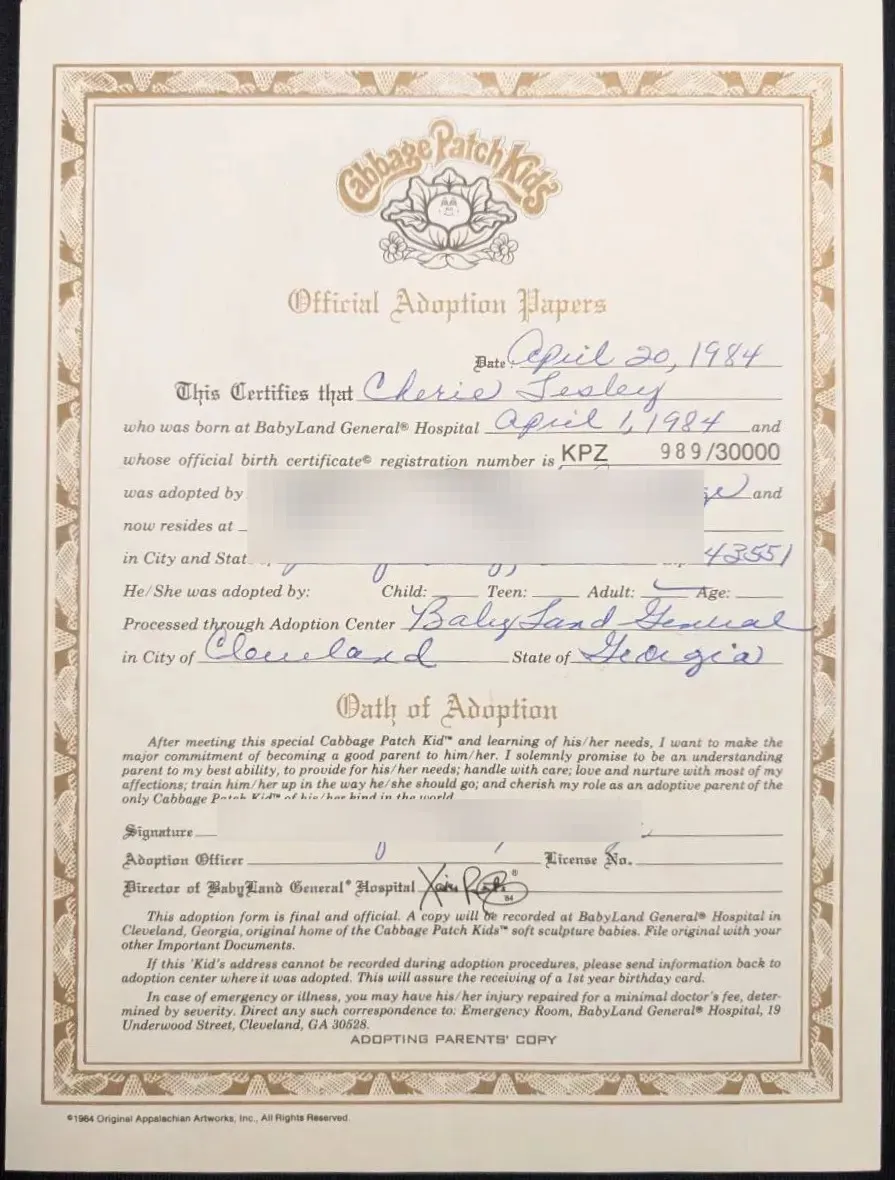 Cabbage Patch Kids™
Official Adoption Papers
Date April 20, 1984
This Certifies that Cherie Lesley
who was born at BabyLand General® Hospital April 1, 1984 and
whose official birth certificate© registration number is KPZ 989/30000
was adopted by and
now resides at
in City and Stat 43551
He/She was adopted by: Child: Teen: Adult: Age:
Processed through Adoption Center BabyLand General
in City of Cleveland State of Georgia
Oath of Adoption
After meeting this special Cabbage Patch Kid™ and learning of his/her needs, I want to make the
major commitment of becoming a good parent to him/her. I solemnly promise to be an understanding
parent to my best ability, to provide for his/her needs; handle with care; love and nurture with most of my
affections; train him/her up in the way he/she should go; and cherish my role as an adoptive parent of the
only Cabbage Patch Kid™ of his/her kind in the world.
Signature
Adoption Officer License No.
Director of BabyLand General® Hospital Xavier Roberts ® '84
This adoption form is final and official. A copy will be recorded at BabyLand General® Hospital in
Cleveland, Georgia, original home of the Cabbage Patch Kids™ soft sculpture babies. File original with your
other Important Documents.
If this 'Kid's address cannot be recorded during adoption procedures, please send information back to
adoption center where it was adopted. This will assure the receiving of a 1st year birthday card.
In case of emergency or illness, you may have his/her injury repaired for a minimal doctor's fee, deter-
mined by severity. Direct any such correspondence to: Emergency Room, BabyLand General® Hospital, 19
Underwood Street, Cleveland, GA 30528.
ADOPTING PARENTS' COPY
©1984 Original Appalachian Artworks, Inc., All Rights Reserved.